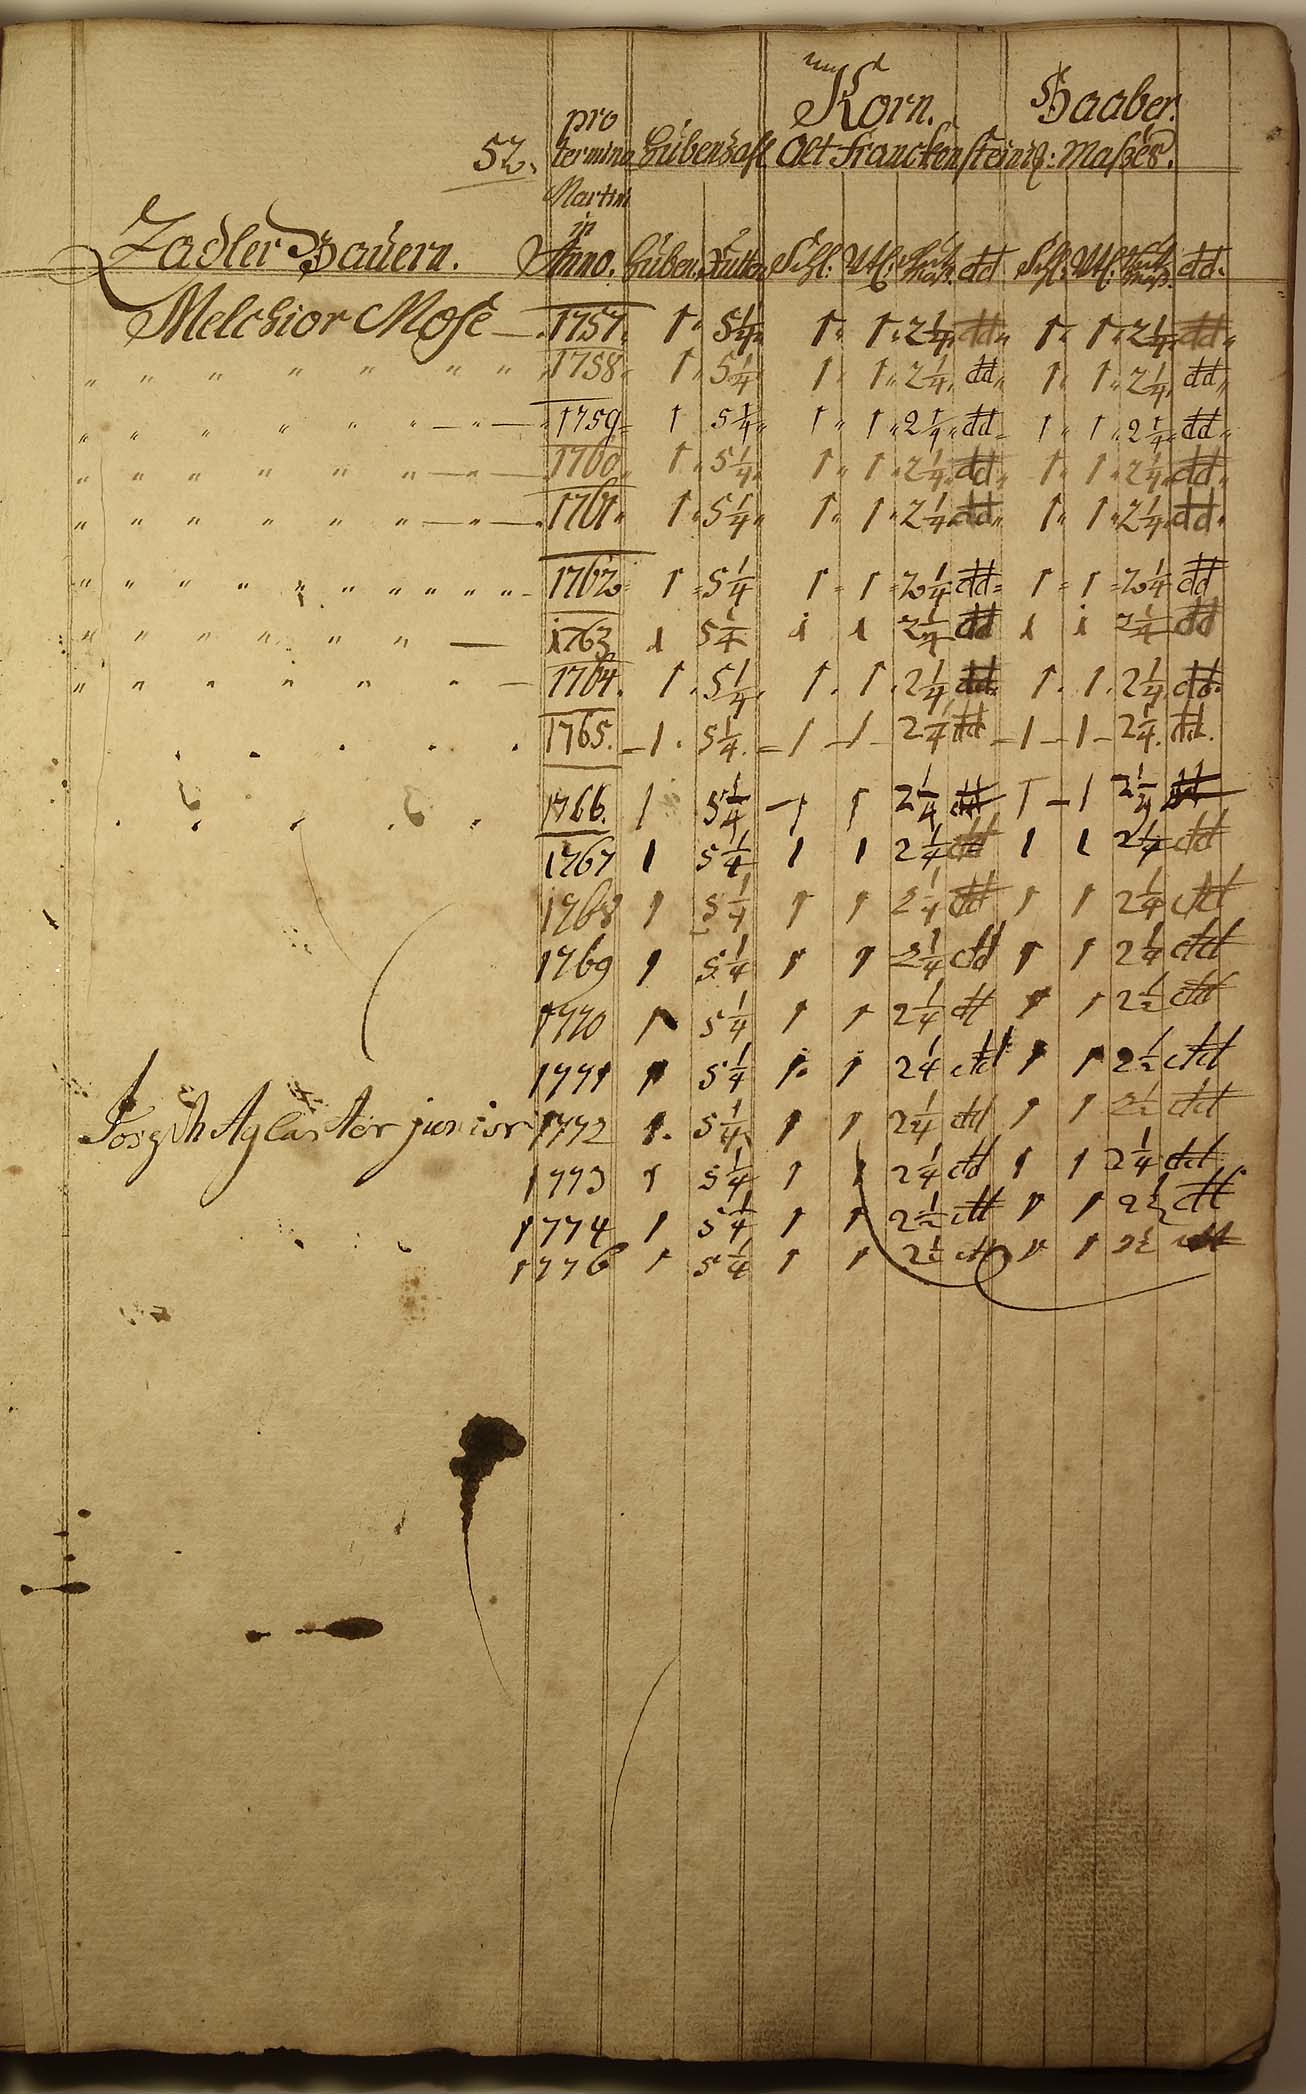 und
pro Korn. Haaber.
52. termino Hubenzahl Alt Franckensteing: Maßes.
Martini
in
Zadler Bauern. Anno. Huben. Rutten Schl: Vtl: Maß. dd Schl: Vtl: Maß. dd.
Melchior Mose — 1757 1 5¼ 1 1 2¼ dd 1 1 2¼ dd
" " " " " " " 1758 1 5¼ 1 1 2¼ dd 1 1 2¼ dd
" " " " " " — " — 1759 1 5¼ 1 1 2¼ dd 1 1 2¼ dd
" " " " " " — " — 1760 1 5¼ 1 1 2¼ dd 1 1 2¼ dd
" " " " " " — " — 1761 1 5¼ 1 1 2¼ dd 1 1 2¼ dd
" " " " " " " " " " 1762 1 5¼ 1 1 2¼ dd 1 1 2¼ dd
" " " " " " — 1763 1 5¼ 1 1 2¼ dd 1 1 2¼ dd
" " " " " " — 1764. 1 5¼ 1 1 2¼ dd 1 1 2¼ dd
1765. 1 5¼ 1 1 2¼ dd 1 1 2¼ dd
1766. 1 5¼ 1 1 2¼ dd 1 1 2¼ dd
1767 1 5¼ 1 1 2¼ dd 1 1 2¼ dd
1768 1 5¼ 1 1 2¼ dd 1 1 2¼ dd
1769 1 5¼ 1 1 2¼ dd 1 1 2¼ dd
1770 1 5¼ 1 1 2¼ dd 1 1 2½ dd
1771 1 5¼ 1 1 2¼ dd 1 1 2½ dd
Joseph Aglaster junior 1772 1 5¼ 1 1 2¼ dd 1 1 2½ dd
1773 1 5¼ 1 1 2¼ dd 1 1 2¼ dd
1774 1 5¼ 1 1 2½ dd 1 1 2½ dd
1776 1 5¼ 1 1 2½ dd 1 1 2½ dd